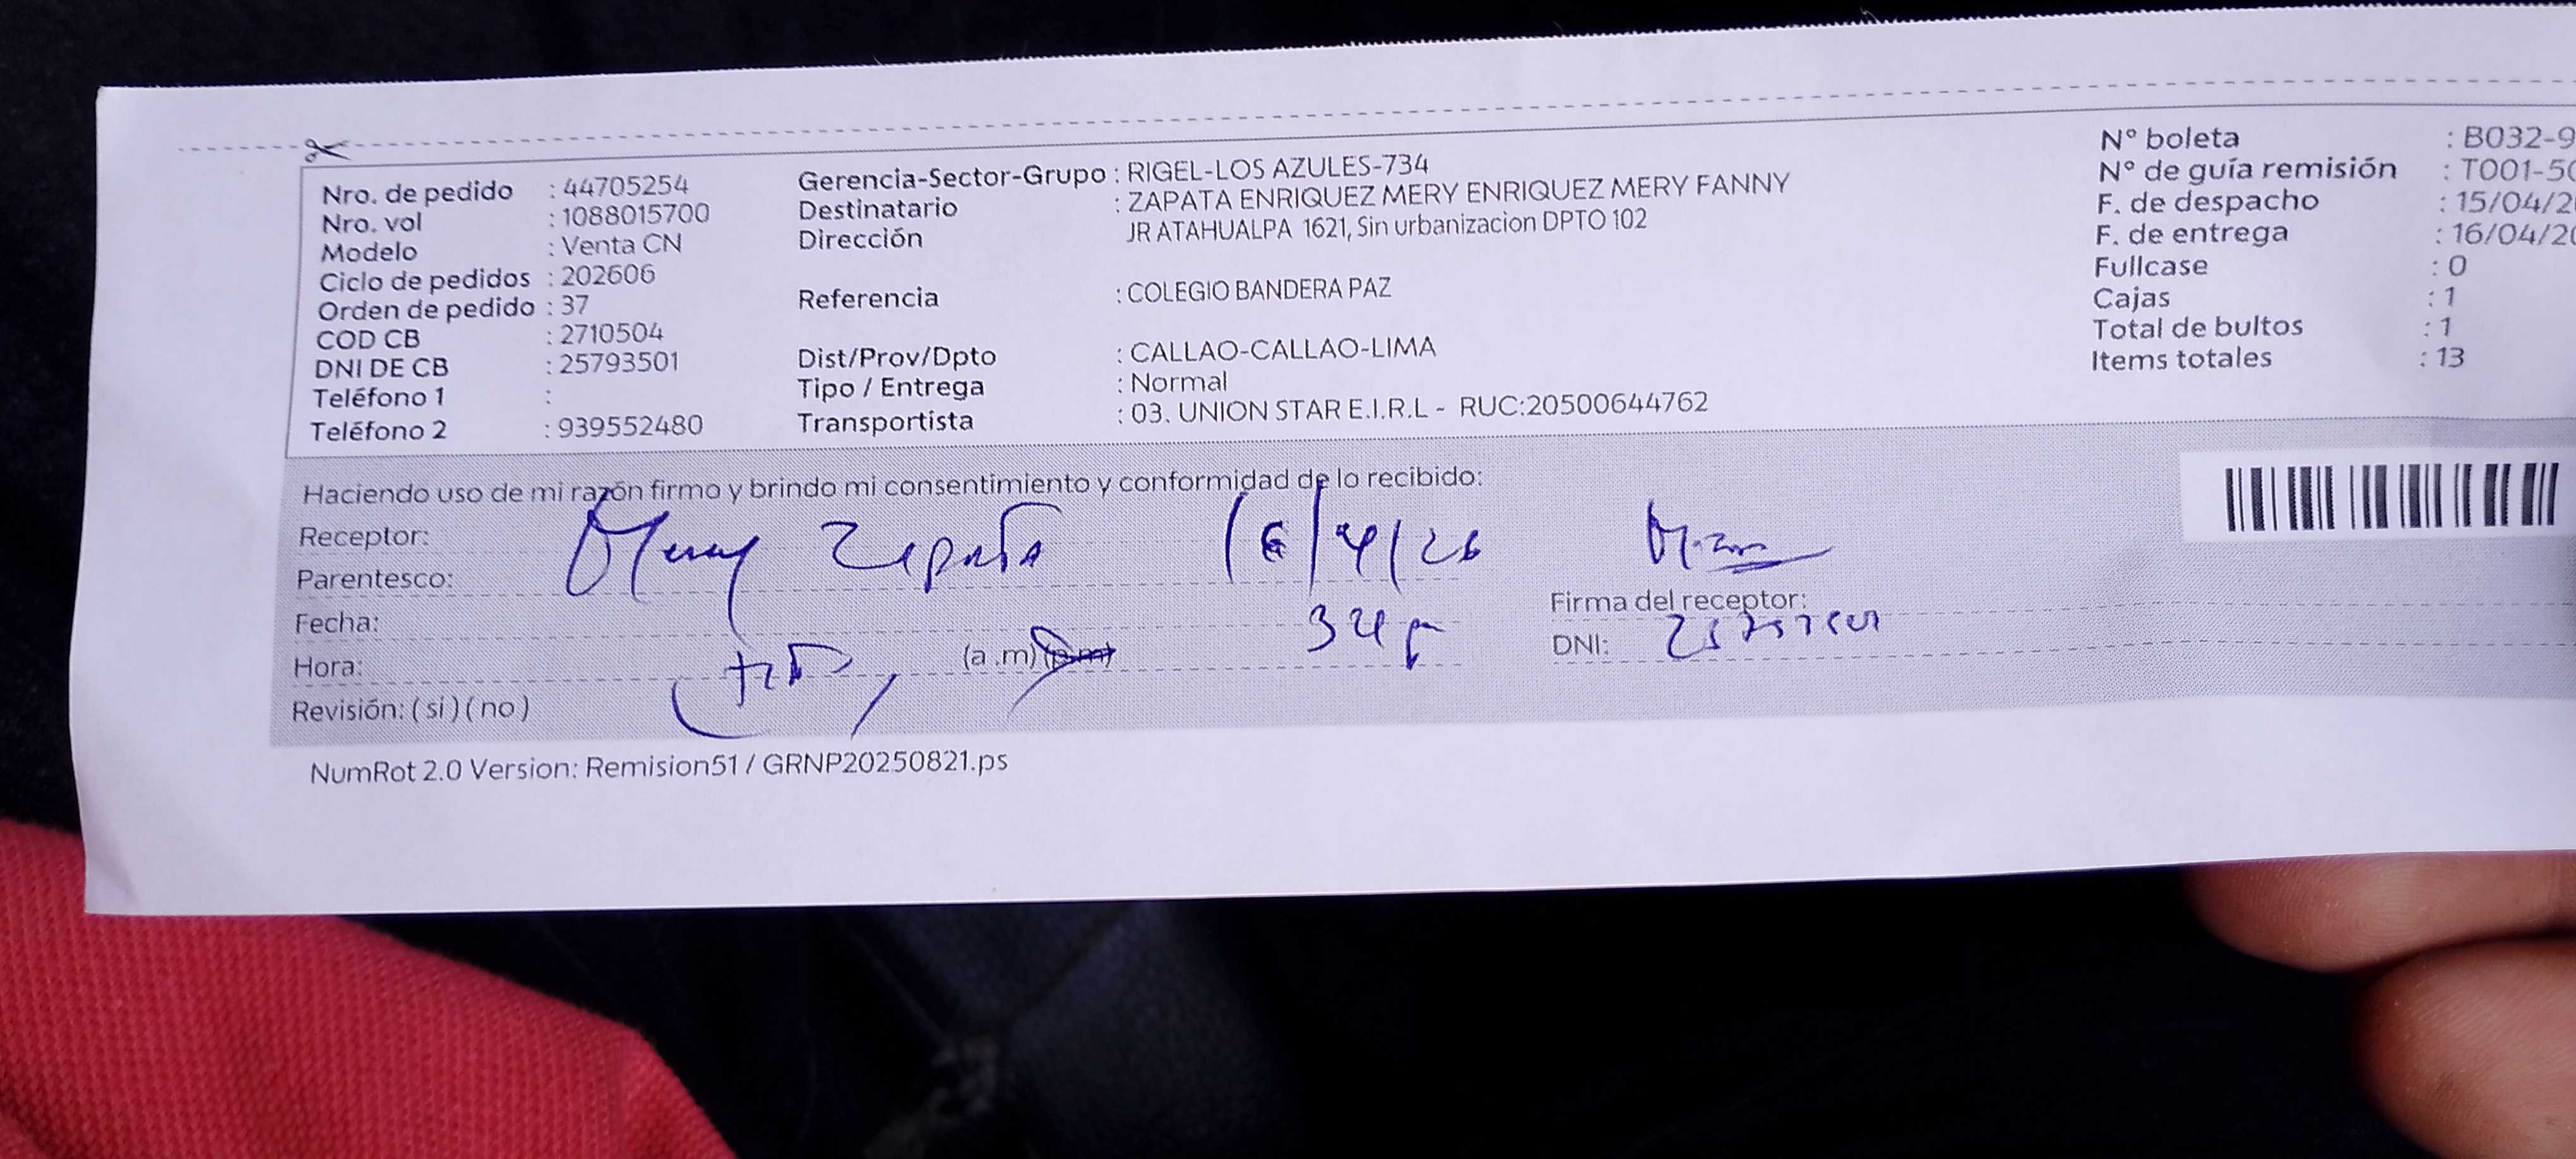 Nro. de pedido : 44705254
Nro. vol : 1088015700
Modelo : Venta CN
Ciclo de pedidos : 202606
Orden de pedido : 37
COD CB : 2710504
DNI DE CB : 25793501
Teléfono 1 :
Teléfono 2 : 939552480
Gerencia-Sector-Grupo : RIGEL-LOS AZULES-734
Destinatario : ZAPATA ENRIQUEZ MERY ENRIQUEZ MERY FANNY
Dirección JR ATAHUALPA 1621, Sin urbanizacion DPTO 102
Referencia : COLEGIO BANDERA PAZ
Dist/Prov/Dpto : CALLAO-CALLAO-LIMA
Tipo / Entrega : Normal
Transportista : 03. UNION STAR E.I.R.L - RUC:20500644762
N° boleta : B032-9
N° de guía remisión : T001-50
F. de despacho : 15/04/20
F. de entrega : 16/04/20
Fullcase : 0
Cajas : 1
Total de bultos : 1
Items totales : 13
Haciendo uso de mi razón firmo y brindo mi consentimiento y conformidad de lo recibido:
Receptor: Mery Zapata 16/4/26
Parentesco:
Fecha:
Hora: (a .m) (p.m)
Revisión: ( si ) ( no )
Firma del receptor:
DNI:
NumRot 2.0 Version: Remision51 / GRNP20250821.ps